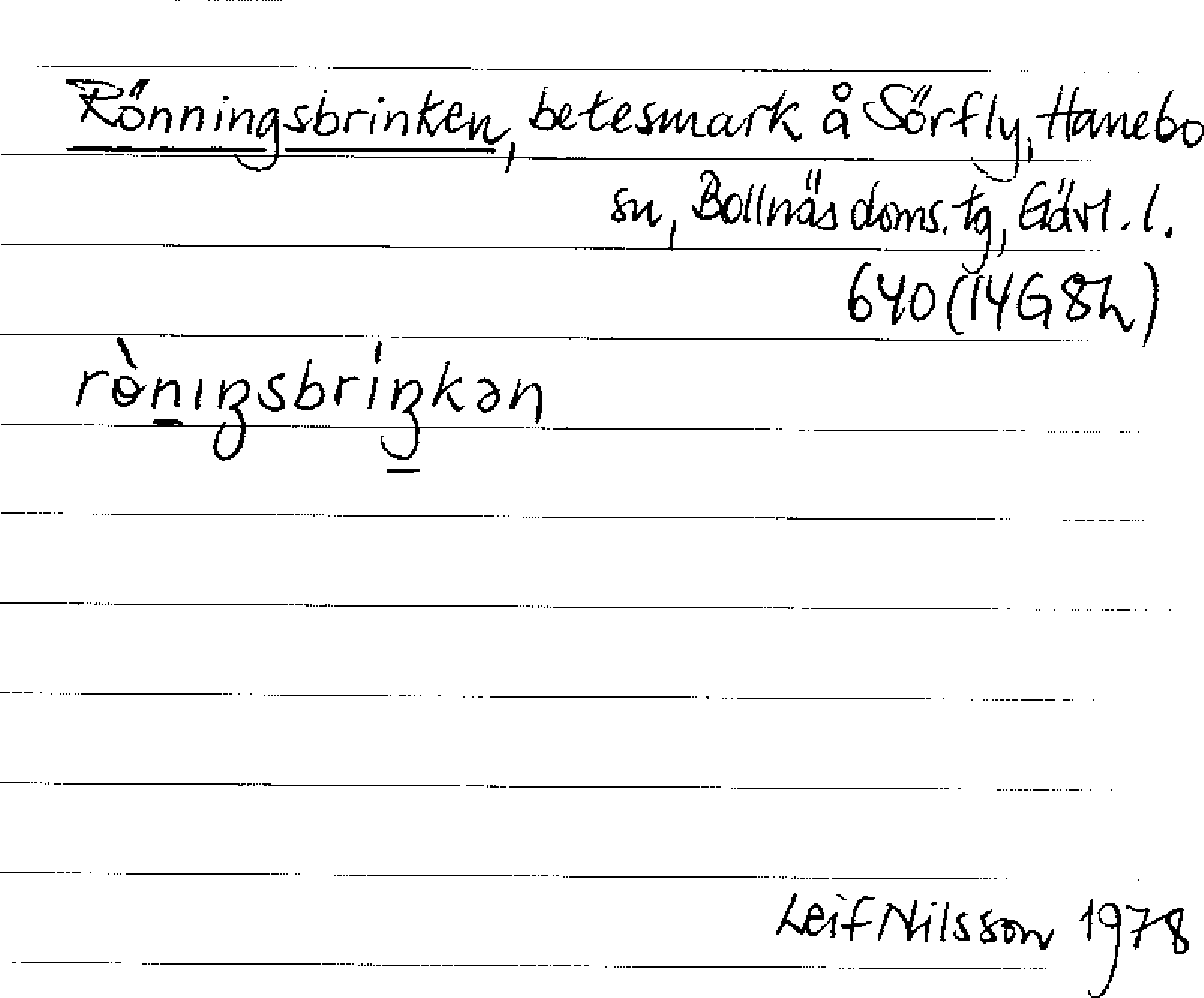 Rönningsbrinken, betesmark å Sörfly, Hanebo
sn, Bollnäs doms. tg, Gävl. l.
640 (14G 8h)
rɵ̀nıŋsbríŋkən
Leif Nilsson 1978